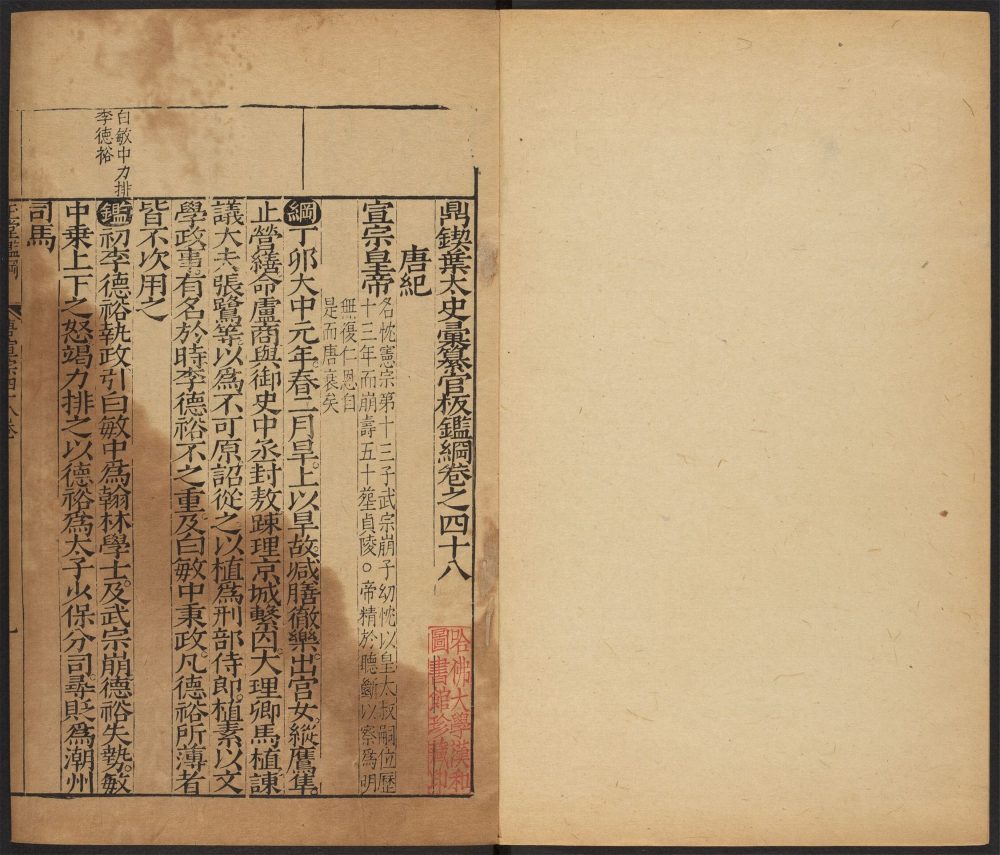 鼎鍥葉太史彙纂官板鑑綱卷之四十八
唐紀
宣宗皇帝
名忱憲宗第十三子武宗崩子幼忱以皇太叔嗣位歷
十三年而崩壽五十葬貞陵○帝精於聽斷以察爲明
無復仁恩自
是而唐衰矣
綱丁卯大中元年春二月旱上以旱故减膳徹樂出宮女縱鷹隼
止營繕命盧商與御史中丞封敖踈理京城繫囚大理卿馬植諫
議大夫張鷺等以爲不可原詔從之以植爲刑部侍郎植素以文
學政事有名於時李德裕不之重及白敏中秉政凡德裕所薄者
皆不次用之
鑑初李德裕執政引白敏中爲翰林學士及武宗崩德裕失勢敏
中乗上下之怒竭力排之以德裕爲太子少保分司尋貶爲潮州
司馬
白敏中力排
李德裕
哈佛大學漢和
圖書館珍藏印